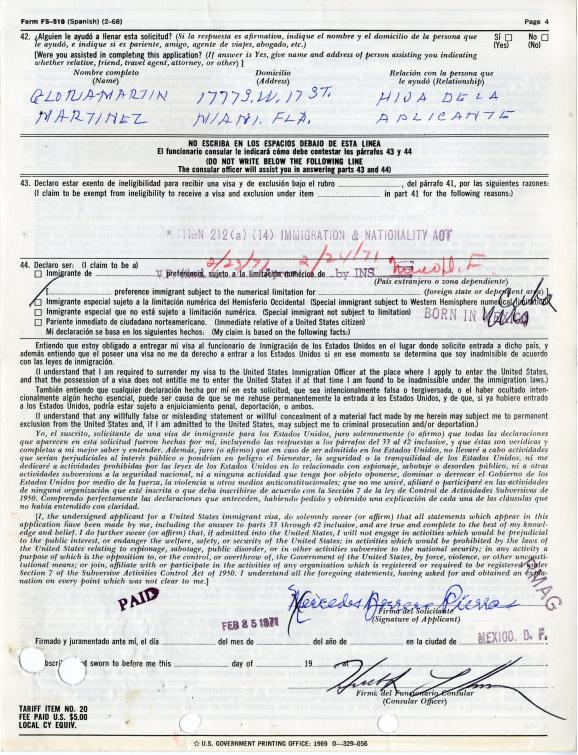 Form FS-510 (Spanish) (2-68) Page 4
42. ¿Alguien le ayudó a llenar esta solicitud? (Si la respuesta es afirmativa, indique el nombre y el domicilio de la persona que Sí ☐ No ☐
le ayudó, e indique si es pariente, amigo, agente de viajes, abogado, etc.) (Yes) (No)
[Were you assisted in completing this application? (If answer is Yes, give name and address of person assisting you indicating
whether relative, friend, travel agent, attorney, or other) ]
Nombre completo Domicilio Relación con la persona que
(Name) (Address) le ayudó (Relationship)
GLORIA MARTIN 1777 S.W. 17 ST. HIJA DE LA
MARTINEZ MIAMI. FLA. APLICANTE
NO ESCRIBA EN LOS ESPACIOS DEBAJO DE ESTA LINEA
El funcionario consular le indicará cómo debe contestar los párrafos 43 y 44
(DO NOT WRITE BELOW THE FOLLOWING LINE
The consular officer will assist you in answering parts 43 and 44)
43. Declaro estar exento de ineligibilidad para recibir una visa y de exclusión bajo el rubro ____, del párrafo 41, por las siguientes razones:
(I claim to be exempt from ineligibility to receive a visa and exclusion under item ____ in part 41 for the following reasons:)
212(a) (14) IMMIGRATION & NATIONALITY ACT
2/23/71 2/24/71
44. Declaro ser: (I claim to be a)
☐ Inmigrante de ____ preferencia, sujeto a la limitación numérica de by INS
(País extranjero o zona dependiente)
[____ preference immigrant subject to the numerical limitation for ____ (foreign state or dependent area)]
☐ Inmigrante especial sujeto a la limitación numérica del Hemisferio Occidental (Special immigrant subject to Western Hemisphere numerical limitation)
☐ Inmigrante especial que no está sujeto a limitación numérica. (Special immigrant not subject to limitation) BORN IN
☐ Pariente inmediato de ciudadano norteamericano. (Immediate relative of a United States citizen)
Mi declaración se basa en los siguientes hechos: (My claim is based on the following facts.)
Entiendo que estoy obligado a entregar mi visa al funcionario de Inmigración de los Estados Unidos en el lugar donde solicite entrada a dicho país, y
además entiendo que el poseer una visa no me da derecho a entrar a los Estados Unidos si en ese momento se determina que soy inadmisible de acuerdo
con las leyes de inmigración.
(I understand that I am required to surrender my visa to the United States Immigration Officer at the place where I apply to enter the United States,
and that the possession of a visa does not entitle me to enter the United States if at that time I am found to be inadmissible under the immigration laws.)
También entiendo que cualquier declaración hecha por mí en esta solicitud, que sea intencionalmente falsa o tergiversada, o el haber ocultado inten-
cionalmente algún hecho esencial, puede ser causa de que se me rehuse permanentemente la entrada a los Estados Unidos, y de que, si ya hubiere entrado
a los Estados Unidos, podría estar sujeto a enjuiciamiento penal, deportación, o ambos.
(I understand that any willfully false or misleading statement or willful concealment of a material fact made by me herein may subject me to permanent
exclusion from the United States and, if I am admitted to the United States, may subject me to criminal prosecution and/or deportation.)
Yo, el suscrito, solicitante de una visa de inmigrante para los Estados Unidos, juro solemnemente (o afirmo) que todas las declaraciones
que aparecen en esta solicitud fueron hechas por mí, incluyendo las respuestas a los párrafos del 33 al 42 inclusive, y que éstas son verídicas y
completas a mi mejor saber y entender. Además, juro (o afirmo) que en caso de ser admitido en los Estados Unidos, no llevaré a cabo actividades
que serían perjudiciales al interés público o pondrían en peligro el bienestar, la seguridad o la tranquilidad de los Estados Unidos, ni me
dedicaré a actividades prohibidas por las leyes de los Estados Unidos en lo relacionado con espionaje, sabotaje o desorden público, ni a otras
actividades subversivas a la seguridad nacional, ni a ninguna actividad que tenga por objeto oponerse, dominar o derrocar el Gobierno de los
Estados Unidos por medio de la fuerza, la violencia u otros medios anticonstitucionales; que no me uniré, afiliaré o participaré en las actividades
de ninguna organización que esté inscrita o que deba inscribirse de acuerdo con la Sección 7 de la ley de Control de Actividades Subversivas de
1950. Comprendo perfectamente las declaraciones que anteceden, habiendo pedido y obtenido una explicación de cada una de las cláusulas que
no había entendido con claridad.
[I, the undersigned applicant for a United States immigrant visa, do solemnly swear (or affirm) that all statements which appear in this
application have been made by me, including the answers to parts 33 through 42 inclusive, and are true and complete to the best of my knowl-
edge and belief. I do further swear (or affirm) that, if admitted into the United States, I will not engage in activities which would be prejudicial
to the public interest, or endanger the welfare, safety, or security of the United States; in activities which would be prohibited by the laws of
the United States relating to espionage, sabotage, public disorder, or in other activities subversive to the national security; in any activity a
purpose of which is the opposition to, or the control, or overthrow of, the Government of the United States, by force, violence, or other unconsti-
tutional means; or join, affiliate with or participate in the activities of any organization which is registered or required to be registered under
Section 7 of the Subversive Activities Control Act of 1950. I understand all the foregoing statements, having asked for and obtained an expla-
nation on every point which was not clear to me.]
PAID
Mercedes Herrera Pierras
Firma del Solicitante
(Signature of Applicant)
FEB 25 1971
Firmado y juramentado ante mí, el día ____ del mes de ____ del año de ____ en la ciudad de MEXICO. D. F.
sworn to before me this ____ day of ____ 19 ____ at
Firma del Funcionario Consular
(Consular Officer)
TARIFF ITEM NO. 20
FEE PAID U.S. $5.00
LOCAL CY EQUIV.
☆ U.S. GOVERNMENT PRINTING OFFICE: 1969 O—329-056